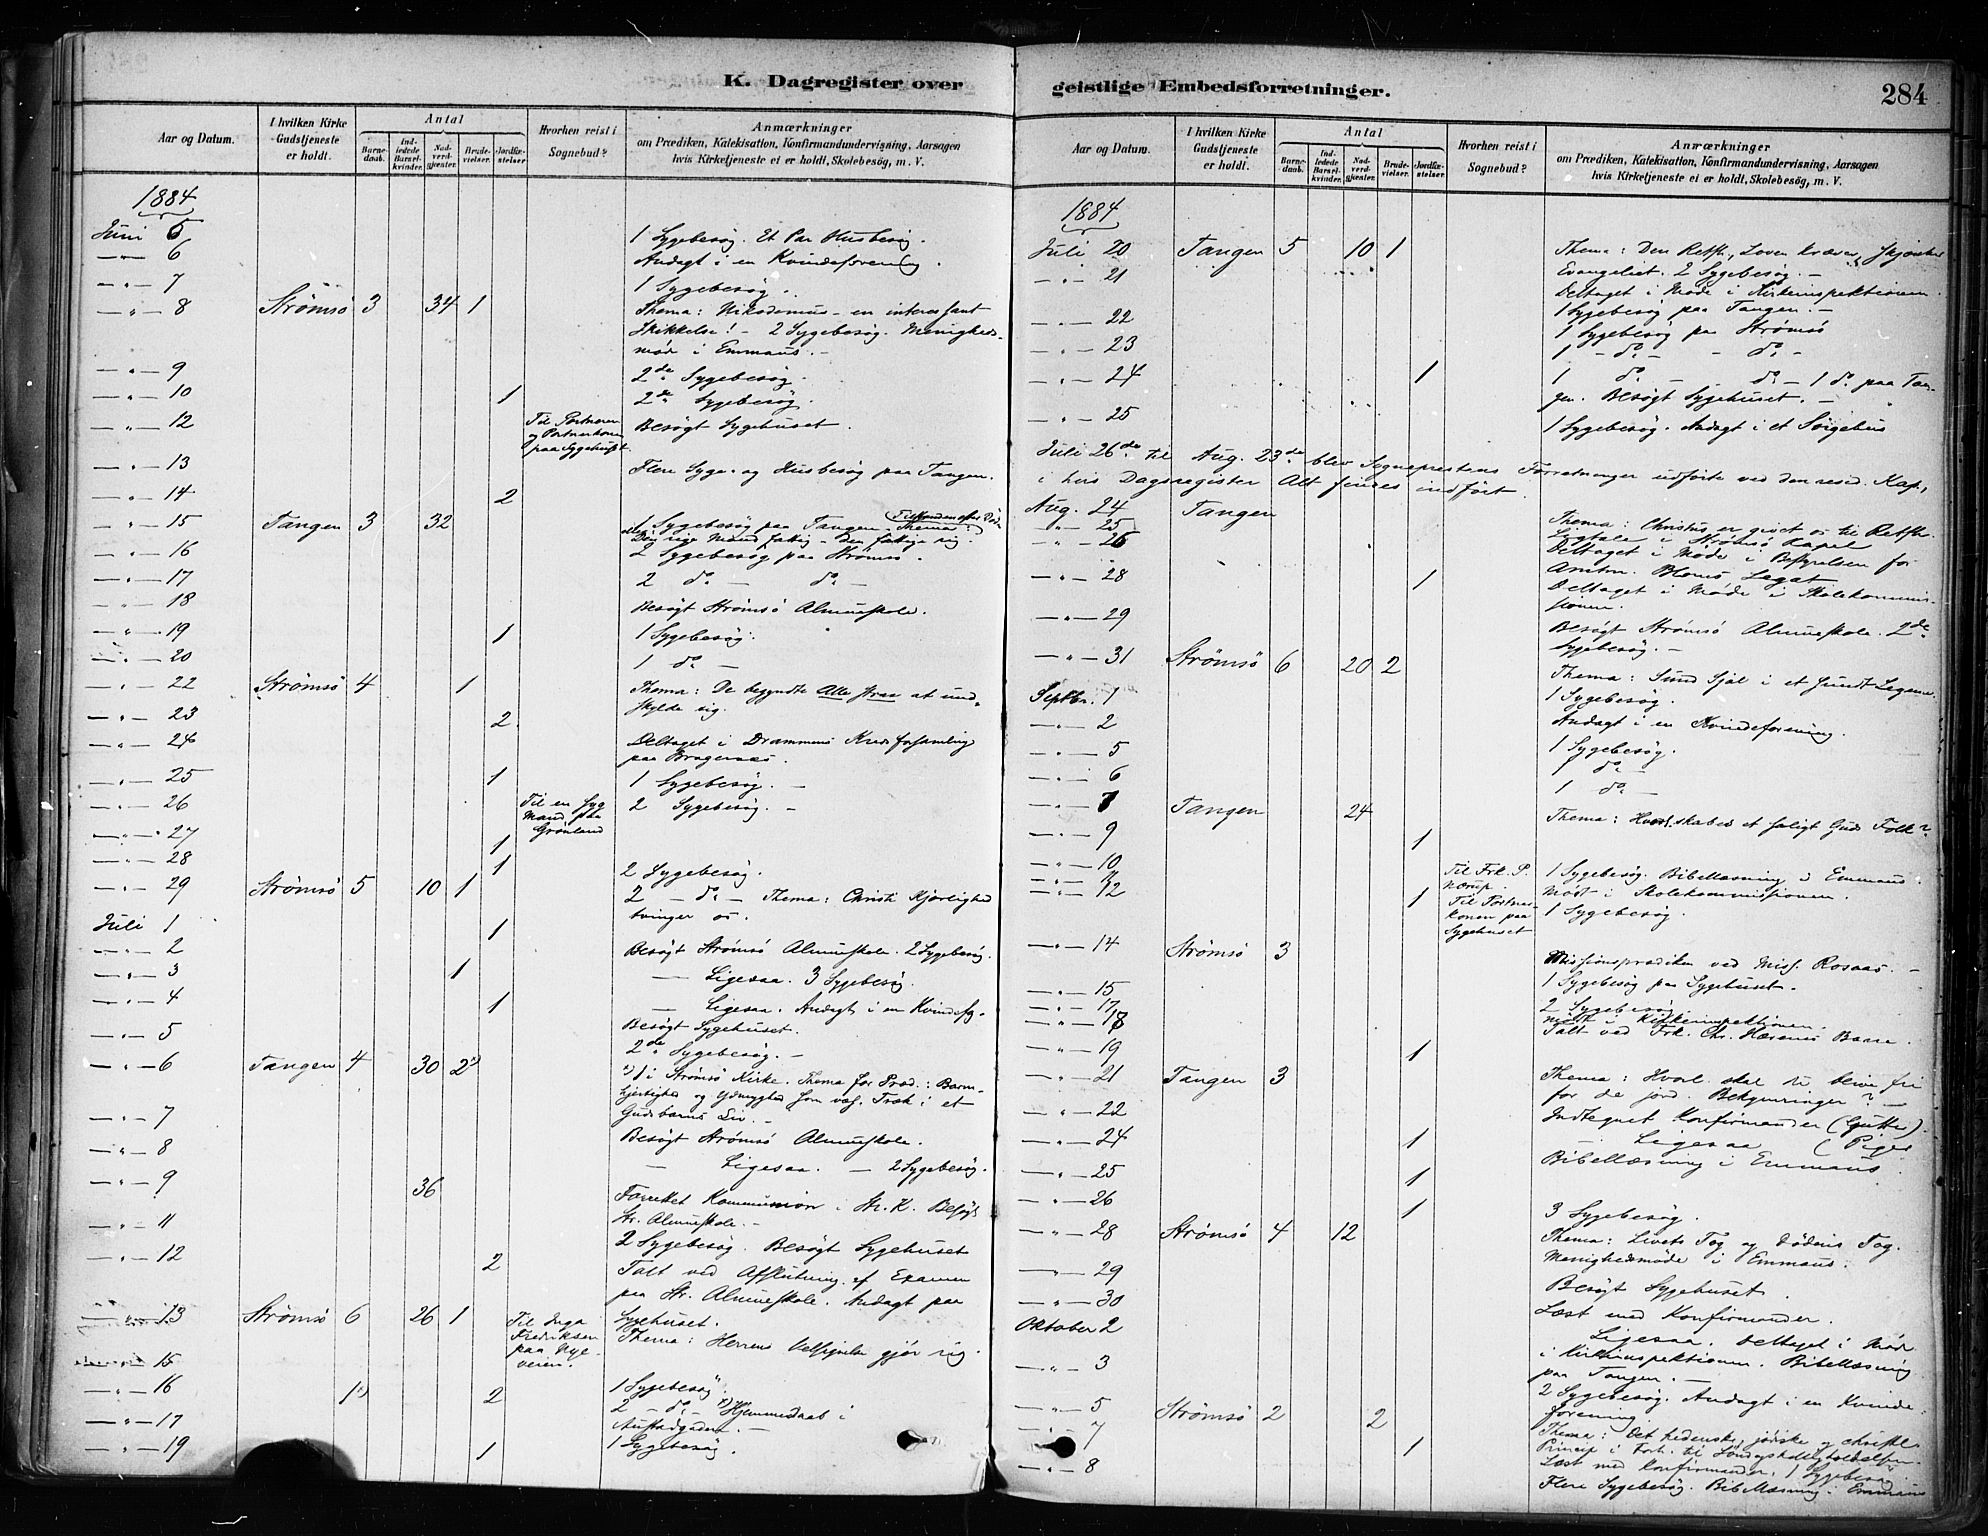 K. Dagregister over
Aar og Datum.
I hvilken Kirke Gudstjeneste er holdt.
Antal
Barnedaab.
Indledede Barselkvinder.
Nadverdgjester.
Brudevielser.
Jordfæstelser
Hvorhen reist i Sognebud?
Anmærkninger
om Prædiken, Katekisation, Konfirmandundervisning, Aarsagen
hvis Kirketjeneste ei er holdt, Skolebesøg, m. V.
1884
Juni 5 1 Sygebesøg. Et Par Husbesøg.
— " — 6 Andagt i en Kvindeforening.
— " — 7 1 Sygebesøg.
— " — 8 Strømsö 3 34 1 Thema: Nikodemus – en interessant
Skikkelse! – 2 Sygebesøg. Menigheds-
møde i Emmaus. –
— " — 9 2de Sygebesøg.
— " — 10 1 2de Sygebesøg.
— " — 12 Til Portneren
og Portnerkonen
paa Sygehuset Besøgt Sygehuset.
— " — 13 Flere Syge- og Husbesøg paa Tangen.
— " — 14 2
— " — 15 Tangen 3 32 1 Sygebesøg paa Tangen. Thema: Tilstanden efter Døden
Den rige Mand fattig – Den fattige rig.
— " — 16 2 Sygebesøg paa Strømsö.
— " — 17 2 do – do –
— " — 18 Besøgt Strømsö Almueskole.
— " — 19 1 1 Sygebesøg.
— " — 20 1 do –
— " — 22 Strømsö 4 1 Thema: De begyndte Alle strax at und-
skylde sig.
— " — 23 2
— " — 24 Deltaget i Drammens Kredsforsamling
paa Bragernæs.
— " — 25 1 1 Sygebesøg. –
— " — 26 Til en syg
Mand paa
Grönland 2 Sygebesøg. –
— " — 27 1
— " — 28 1 2 Sygebesøg.
— " — 29 Strømsö 5 10 1 2 – do – Thema: Christi Kjærlighed
tvinger os.
Juli 1 1
— " — 2 Besøgt Strømsö Almueskole. 2 Sygebesøg.
— " — 3 1 — Ligesaa. 3 Sygebesøg.
— " — 4 1 — Ligesaa. Andagt i en Kvindefg.
— " — 5 Besøgt Sygehuset.
2de Sygebesøg. –
— " — 6 Tangen 4 30 2*) *) 1 i Strømsö Kirke. Thema for Præd.: Barm-
hjertighed og Ydmyghed som væs. Træk i et
Gudsbarns Liv. –
— " — 7 Besøgt Strømsö Almueskole.
— " — 8 — Ligesaa. – 2 Sygebesøg.
— " — 9 36 Forrettet Kommunion i Str. K. Besøgt
Str. Almueskole. –
— " — 11 2 Sygebesøg. Besøgt Sygehuset
— " — 12 2 Talt ved Afslutning af Examen
paa Str. Almueskole. Andagt paa
Sygehuset.
— " — 13 Strømsö 6 26 1 Til Inga
Fredriksen
paa Nye-
veien. Thema: Herrens Velsignelse gjør rig.
— " — 15
— " — 16 1*) 2 1 Sygebesøg
— " — 17 2 – do – *) Hjemmedaab i
Austadgaden. –
— " — 19 1 1 Sygebesøg.
geistlige Embedsforretninger.
284
Aar og Datum.
I hvilken Kirke Gudstjeneste er holdt.
Antal
Barnedaab.
Indledede Barselkvinder.
Nadverdgjester.
Brudevielser.
Jordfæstelser.
Hvorhen reist i Sognebud?
Anmærkninger
om Prædiken, Katekisation, Konfirmandundervisning, Aarsagen
hvis Kirketjeneste ei er holdt, Skolebesøg, m. V.
1884
Juli 20 Tangen 5 10 1 Thema: Den Retfh., Loven kræver, skjænker
Evangeliet. 2 Sygebesøg. –
— " — 21 Deltaget i Møde i Kirkeinspektionen.
1 Sygebesøg paa Tangen. –
— " — 22 1 Sygebesøg paa Strømsö
— " — 23 1 – do – – do –
— " — 24 1 1 do – do – 1 do paa Tan-
gen. Besøgt Sygehuset. –
— " — 25 1 Sygebesøg. Andagt i et Sörgehus
Juli 26de til Aug. 23de blev Sogneprestens Forretninger udförte ved den resid. Kap.,
i hvis Dagsregister Alt findes indfört.
Aug. 24 Tangen Thema: Christus er gjort os til Retfh.
— " — 25 Ligtale i Strømsö Kapel
— " — 26 Deltaget i Møde i Bestyrelsen for
Amtm. Bloms Legat
— " — 28 1 Deltaget i Møde i Skolekommis-
sionen.
— " — 29 Besøgt Strømsö Almueskole. 2de
Sygebesøg. –
— " — 31 Strømsö 6 20 2 Thema: Sund Sjæl i et sundt Legeme.
Septbr. 1 1 Sygebesøg.
— " — 2 Andagt i en Kvindeforening.
— " — 5 1 Sygebesøg.
— " — 6 1 do –
1 do –
— " — 7 Tangen 24 Thema: Hvorl. skabes et saligt Guds Folk?
— " — 9 1
— " — 10 Til Frk. P.
Nærup. 1 Sygebesøg. Bibellæsning i Emmaus.
— " — 11 Mødt i Skolekommissionen.
— " — 12 1 Til Portner-
konen paa
Sygehuset 1 Sygebesøg.
— " — 14 Strømsö 3 Missionsprædiken ved Miss. Rosaas. –
— " — 15 1 Sygebesøg paa Sygehuset.
— " — 17 2 Sygebesøg.
Mødt i Kirkeinspektionen.
— " — 18 Talt ved Frk. Chr. Hæsenes Baare.
— " — 19 1
— " — 21 Tangen 3 Thema: Hvorl. skal vi blive fri
for de jord. Bekymringer? –
— " — 22 Indtegnet Konfirmander (Gutter).
— " — 24 1 – Ligesaa (Piger
Bibellæsning i Emmaus.
— " — 25 1
— " — 26 1 3 Sygebesøg.
— " — 28 Strømsö 4 12 Thema: Livets Tog og Dødens Tog.
Menighedsmöde i Emmaus.
— " — 29 Besøgt Sygehuset.
— " — 30 Læst med Konfirmander.
Oktober 2 Ligesaa. Deltaget i Møde
i Kirkeinspektionen. Bibellæsning
paa Tangen. –
— " — 3 2 Sygebesøg. Andagt i en Kvinde-
forening.
— " — 5 Strømsö 2 2 Thema: Det hedenske, jødiske og christel.
Princip i Forh. til Søndagshelligholdelsen.
— " — 7 1 Læst med Konfirmander. 1 Sygebesøg.
— " — 8 Flere Sygebesøg. Bibellæsning i Emmaus